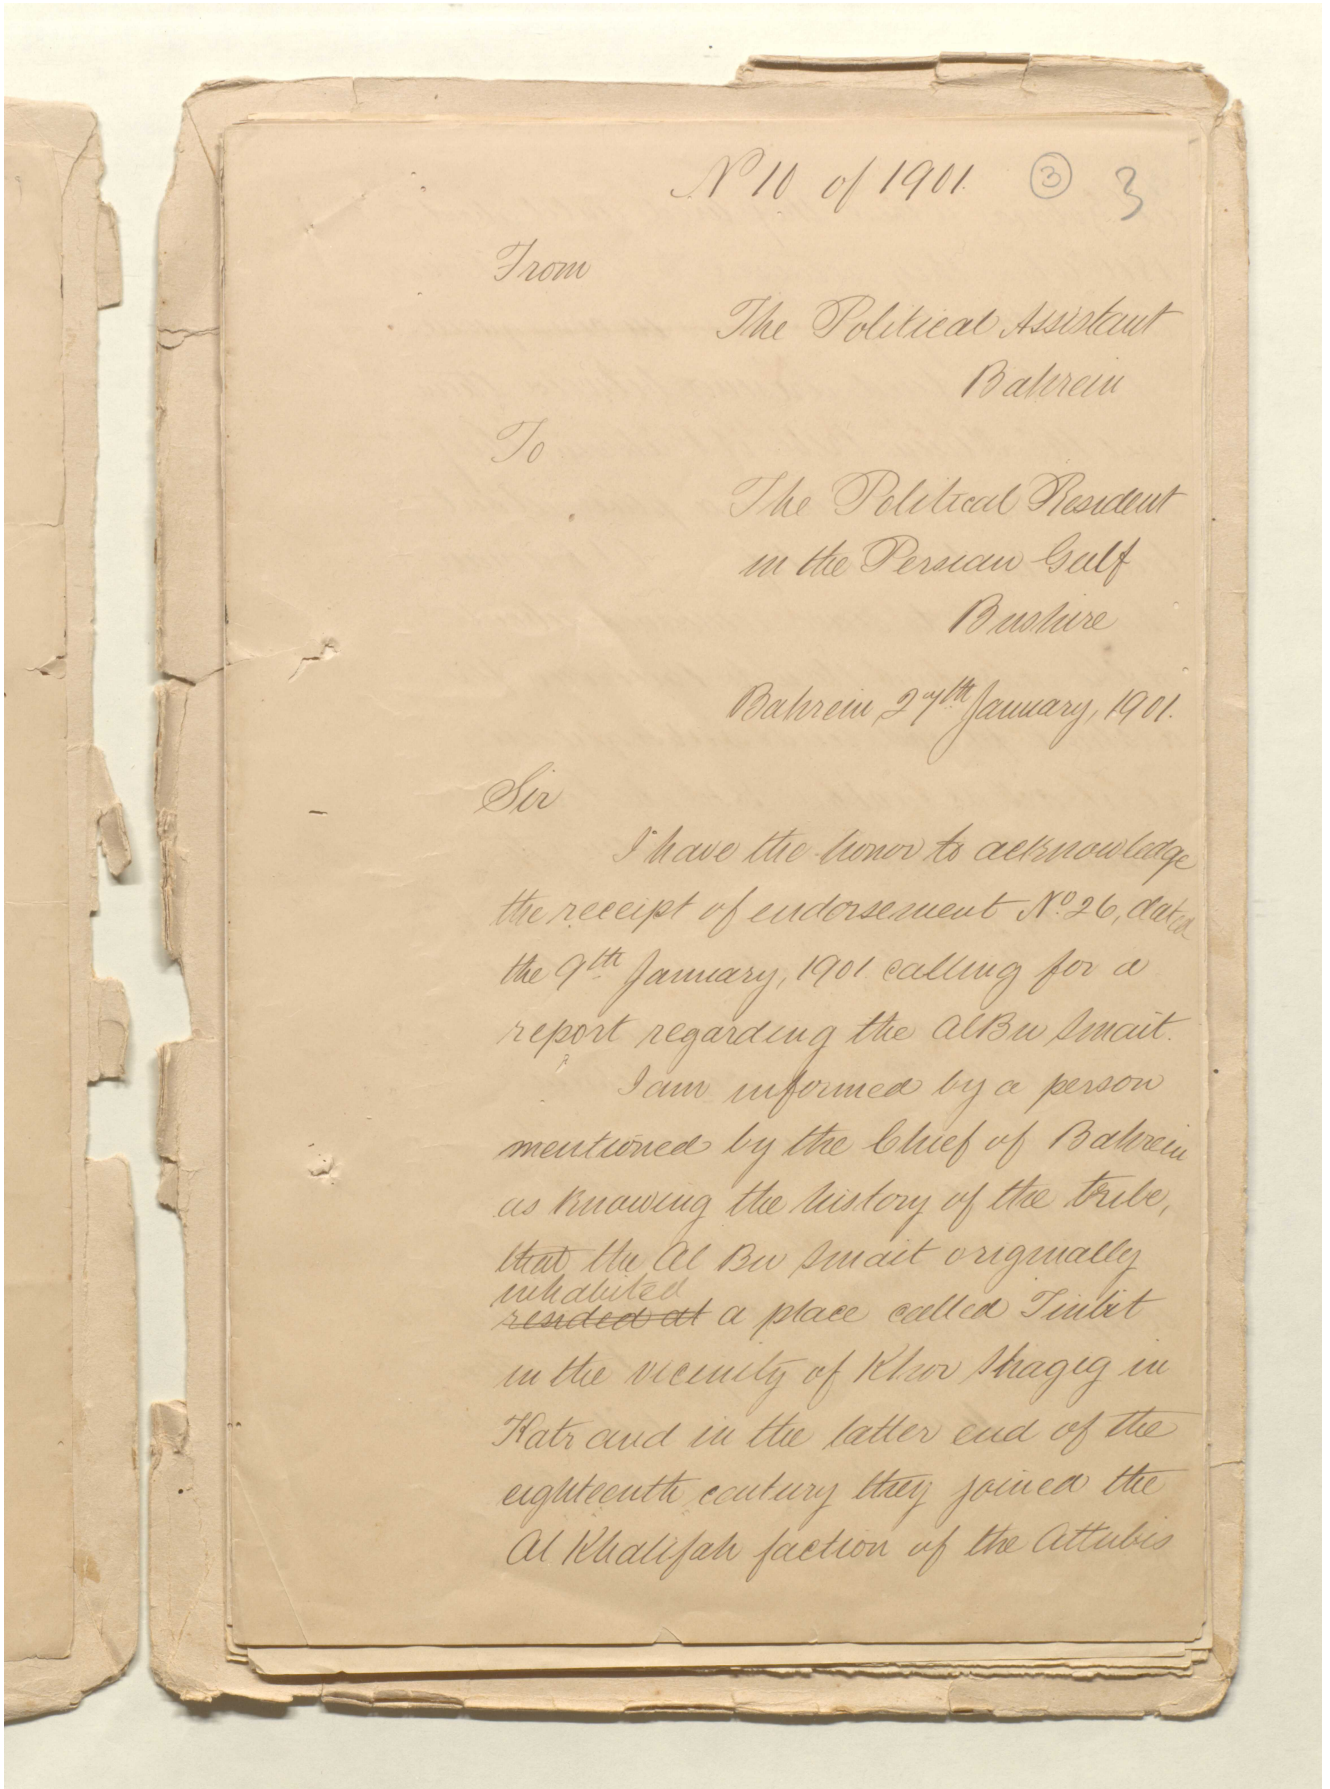 No 10 of 1901. 3 3
From
The Political Assistant
Bahrein
To
The Political Resident
in the Persian Gulf
Bushire
Bahrein, 27th January, 1901.
Sir
I have the honor to acknowledge
the receipt of endorsement No. 26, dated
the 9th January, 1901. calling for a
report regarding the AlBu Smait.
I am informed by a person
mentioned by the Chief of Bahrein
as knowing the history of the tribe,
that the Al Bu Smait originally
inhabited
resided at a place called Tinbit
in the vicinity of Khor Shagig in
Katr and in the latter end of the
eighteenth century they joined the
Al Khalifah faction of the Attubis